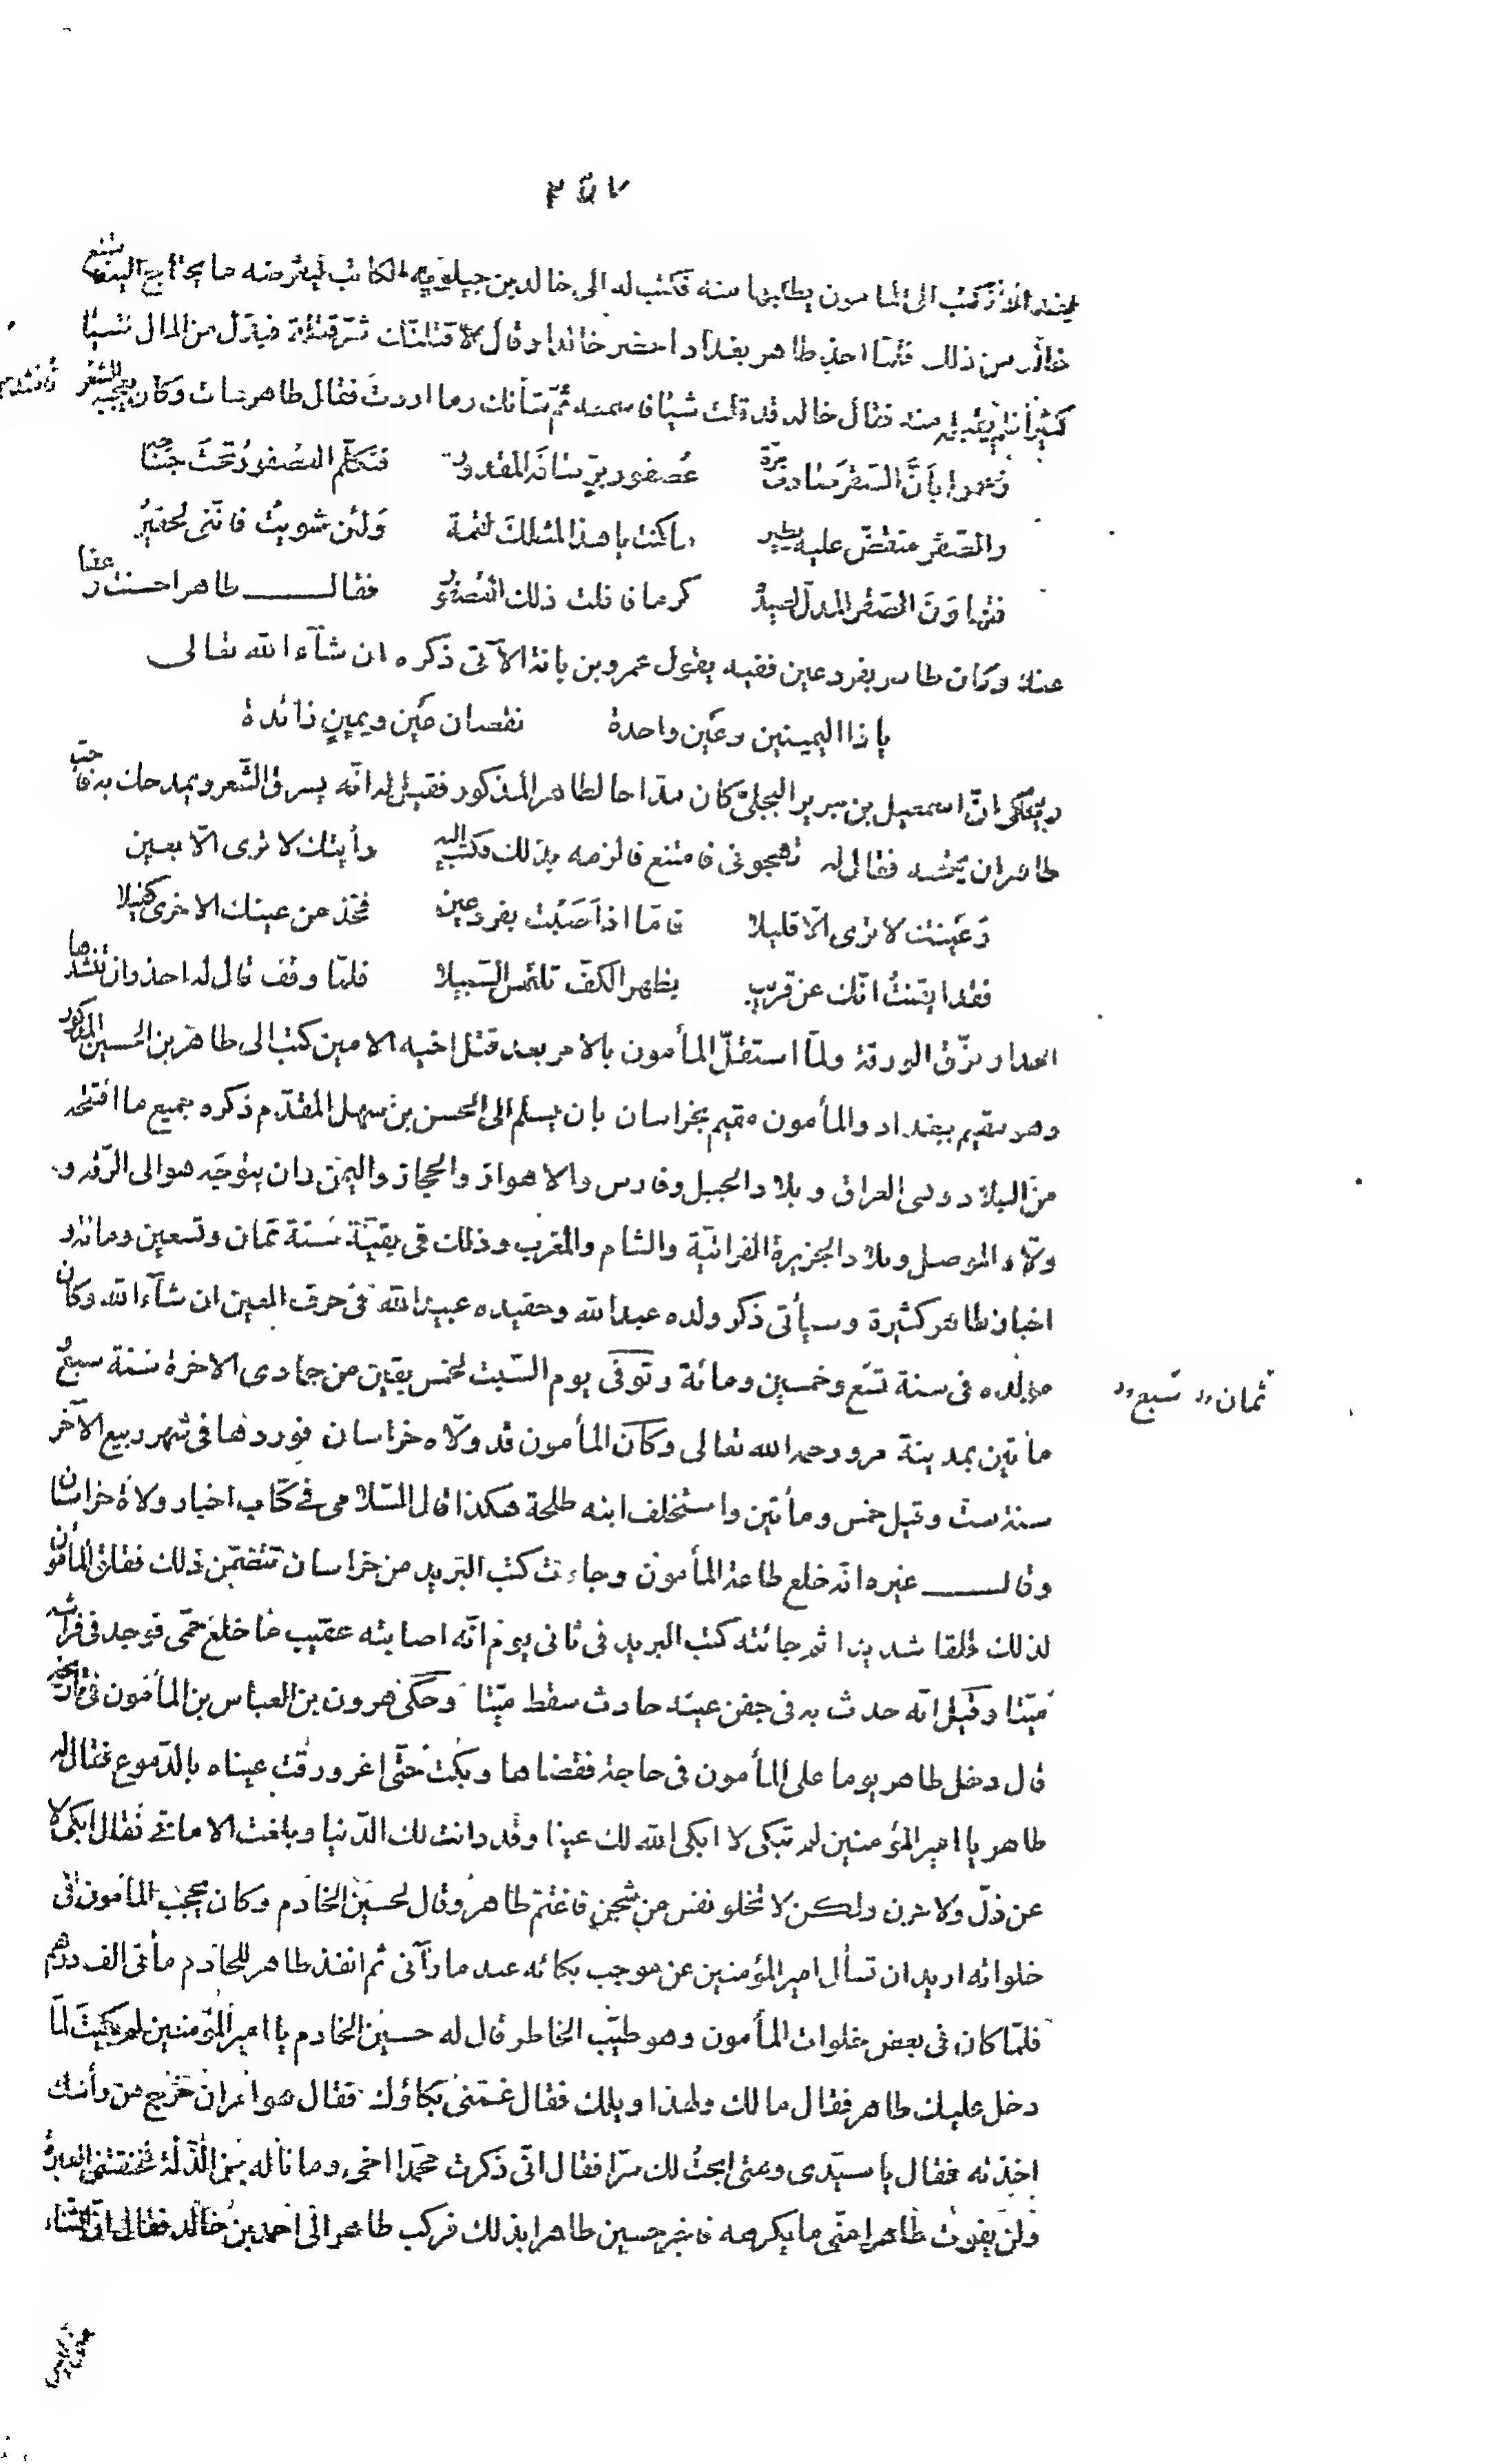 ٣٥٧
كتب الى المامون يطلبها منه فكتب له الى خالد بن جيلويه الكاتب ليقرضه ما يحتاج اليه فامتنع
خالد من ذلك فلما اخذ طاهر بغداد احضر خالدا وقال لاقتلنك شر قتلة فبذل من المال شيئا
كثيرا فلم يقبله منه فقال خالد قد قلت شيئا فاسمعه ثم شأنك وما اردت فقال طاهر هات وكان يعجبه الشعر فانشده
زعموا بأنّ الصقر صادف مرّة عُصفور برّ ساقه المقدور فتكلّم العصفور تحت جناحه
والصّقر منقضّ عليه يطير ما كنت يا هذا لمثلك لقمة ولئن شويتُ فانّنى لحقيرُ
فتهاون الصقر المدلّ بصيده كرما فافلت ذلك العُصفور فقال طاهر احسنت وعفا
عنه وكان طاهر بفرد عين ففيه يقول عمرو بن بانة الآتى ذكره ان شآء الله تعالى
يا ذا اليمينين وعين واحدة نقصان عين ويمين زائدة
ويحكى انّ اسمعيل بن جرير البجلى كان مدّاحا لطاهر المذكور فقيل له انّه يسرق الشّعر ويمدحك به فاحبّ
طاهر ان يمتحنه فقال له تهجونى فامتنع فالزمه بذلك فكتب اليه رأيتك لا ترى الّا بعين
وعينك لا ترى الّا قليلا فامّا اذ اصبت بفرد عين فخذ من عينك الاخرى كفيلا
فقد ايقنتُ انّك عن قريب بظهر الكفّ تلتمس السّبيلا فلمّا وقف قال له احذر ان تنشدها
احدا ومزّق الورقة ولمّا استقلّ المأمون بالامر بعد قتل اخيه الامين كتب الى طاهر بن الحسين المذكور
وهو مقيم ببغداد والمأمون مقيم بخراسان بان يسلم الى الحسن بن سهل المقدّم ذكره جميع ما افتتحه
من البلاد وهى العراق وبلاد الجبل وفارس والاهواز والحجاز واليمن وان يتوجّه هو الى الرّقة و
ولّاه الموصل وبلاد الجزيرة الفراتيّة والشام والمغرب وذلك فى بقيّة سنة ثمان وتسعين ومائة و
اخبار طاهر كثيرة وسيأتى ذكر ولده عبد الله وحفيده عبيد الله فى حرف العين ان شآء الله وكان
مولده فى سنة تسع وخمسين ومائة وتوفى يوم السّبت لخمس بقين من جمادى الاخرة سنة سبع
ثمان سبع
مأتين بمدينة مرو رحمه الله تعالى وكان المأمون قد ولّاه خراسان فوردها فى شهر ربيع الآخر
سنة ست وقيل خمس ومأتين واستخلف ابنه طلحة هكذا قال السّلامى فى كتاب اخبار ولاة خراسان
وقال غيره انه خلع طاعة المأمون وجاءت كتب البريد من خراسان تتضمّن ذلك فقلق المأمون
لذلك قلقا شديدا ثم جائته كتب البريد فى ثانى يوم انّه اصابته عقيب ما خلع حمّى فوجد فى فراشه
ميّتا وقيل انّه حدث به فى جفن عينه حادث سقط ميّتا وحكى هرون بن العباس بن المأمون فى تاريخه
قال دخل طاهر يوما على المأمون فى حاجة فقضاها وبكت حتّى اغرورقت عيناه بالدّموع فقال له
طاهر يا امير المؤمنين لم تبكى لا ابكى الله لك عينا وقد دانت لك الدّنيا وبلغت الامانى فقال ابكى لا
عن ذلّ ولا حزن ولكن لا تخلو نفس من شجن فاغتمّ طاهر وقال لحسين الخادم وكان يحجب المأمون فى
خلواته اريد ان تسأل امير المؤمنين عن موجب بكائه عند ما رآنى ثم انفذ طاهر للخادم مأتى الف درهم
فلمّا كان فى بعض خلوات المأمون وهو طيّب الخاطر قال له حسين الخادم يا امير المؤمنين لم بكيت لمّا
دخل عليك طاهر فقال مالك ولهذا ويلك فقال غمّنى بكاؤك فقال هو امر ان خرج من رأسك
اخذته فقال يا سيّدى ومتى ابحتُ لك سرّا فقال انّى ذكرت محمّدا اخى وما ناله من الذّلّة فخنقتنى العبرة
ولن يفوت طاهرا منّى ما يكرهه فاخبر حسين طاهرا بذلك فركب طاهر الى احمد بن خالد فقال له انّ الثّناء